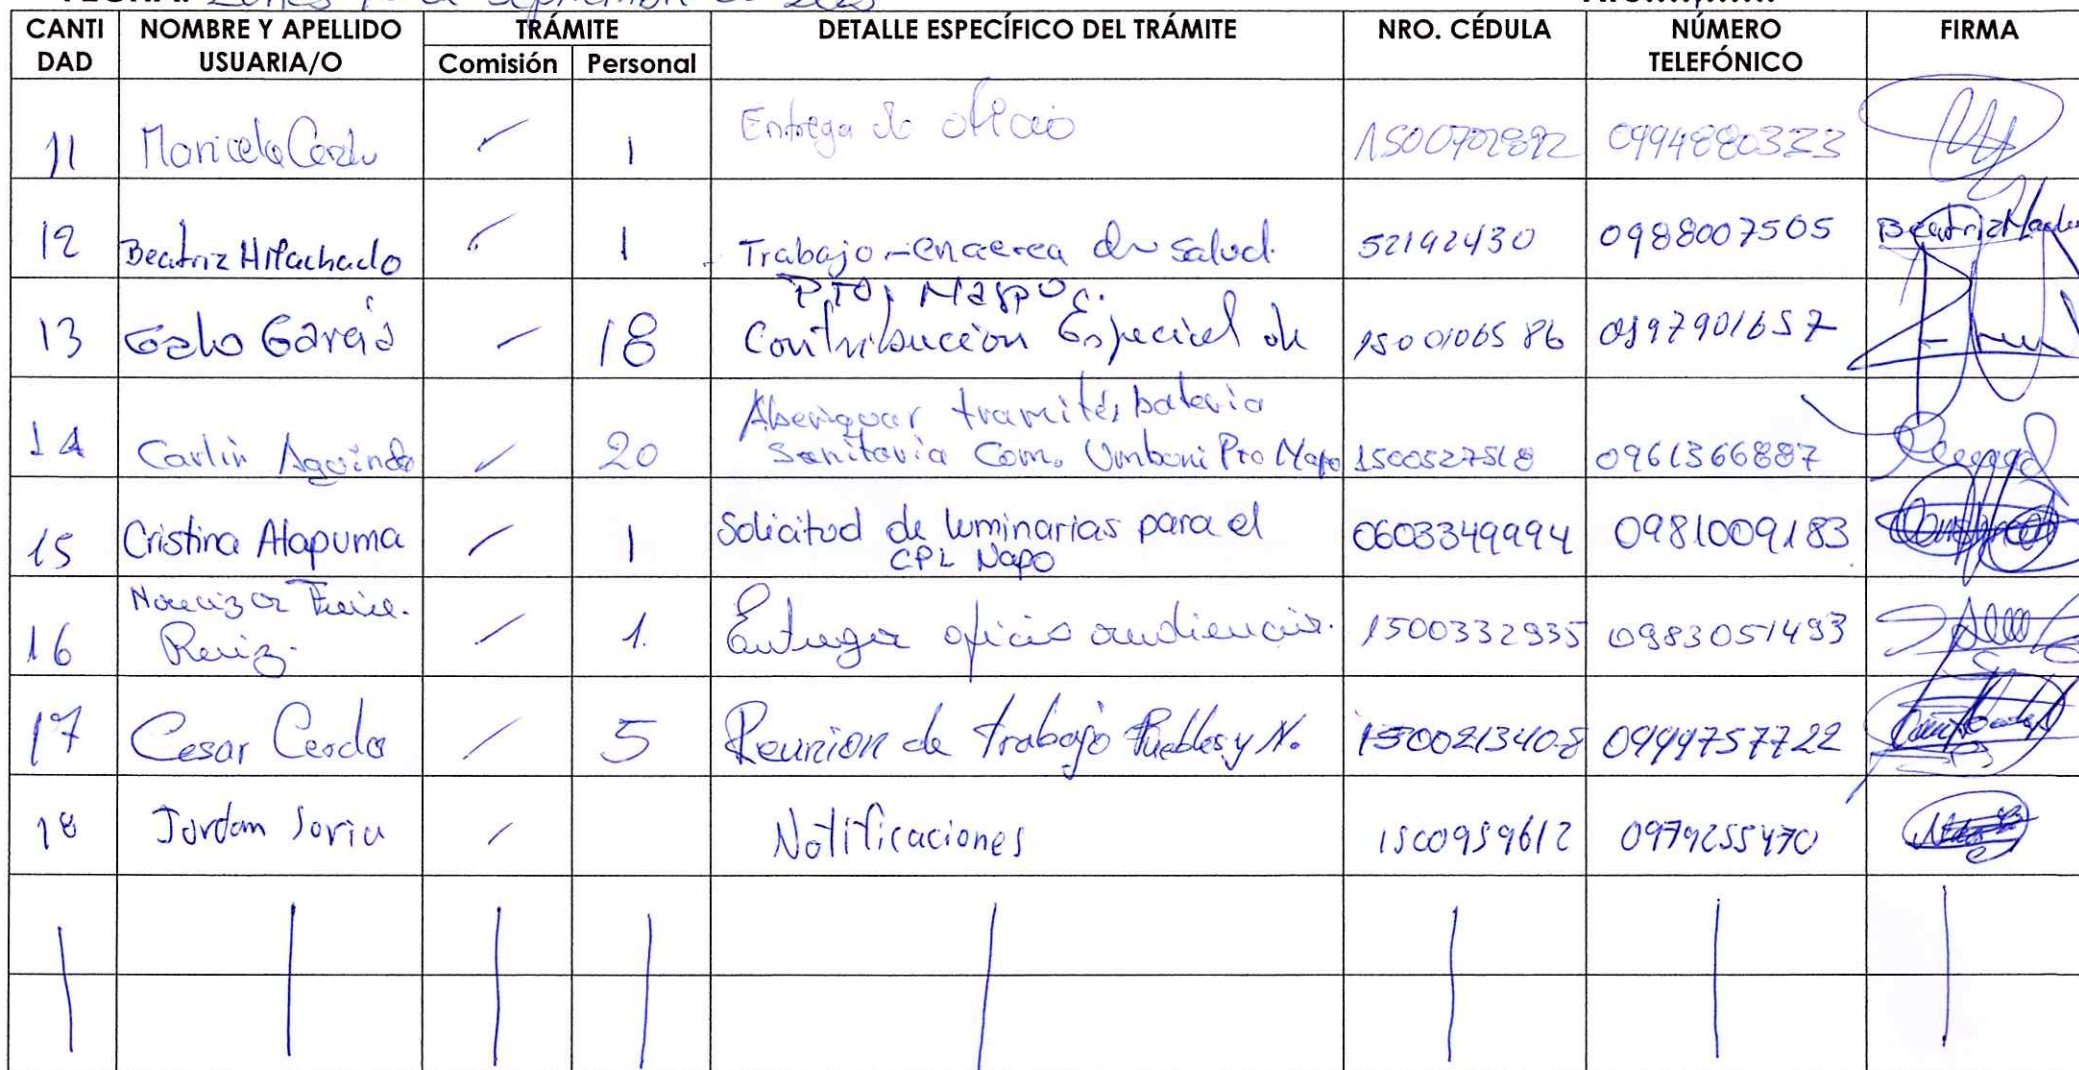 CANTI DAD NOMBRE Y APELLIDO USUARIA/O TRÁMITE Comisión Personal DETALLE ESPECÍFICO DEL TRÁMITE NRO. CÉDULA NÚMERO TELEFÓNICO FIRMA
11 Maricela 1 Entrega de oficio 1500702892 0994880333
12 Beatriz 1 Trabajo - de salud 52192430 0988007505 Beatriz
13 García 18 Contribución Especial de 1500106586 0997901657
14 Carlin 20 Aberiguar tramites bateria
Sanitaria Com. Pro Napo 1500527518 0961366887
15 Cristina Atapuma 1 Solicitud de luminarias para el
CPL Napo 0603349994 0981009183
16 1. Entregar oficio audiencia. 1500332935 0983051493
17 Cesar Cerda 5 Reunion de trabajo Pueblos y N. 1500213408 0999757722
18 Jordan Soria Notificaciones 1500959612 0979255470